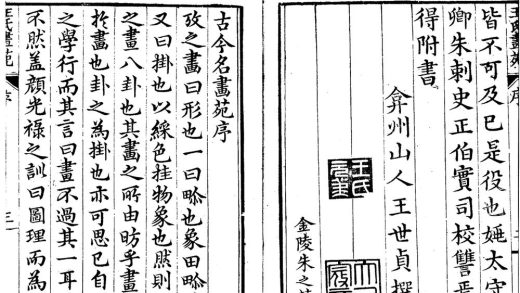 王氏畫苑
序
皆不可及巳是役也太守
卿朱刺史正伯實司校讎焉
得附書
弇州山人王世貞撰
王氏元美
金陵朱之
古今名畫苑序
攷之畫曰形也一曰畍也象田畍
又曰掛也以綵色挂物象也然則
之畫八卦也其畫之所由昉乎畫
扵畫也卦之為掛也亦可思已自
之學行而其言曰畫不過其一耳
不然盖顔光禄之訓曰圖理而為
王氏畫苑
序
三